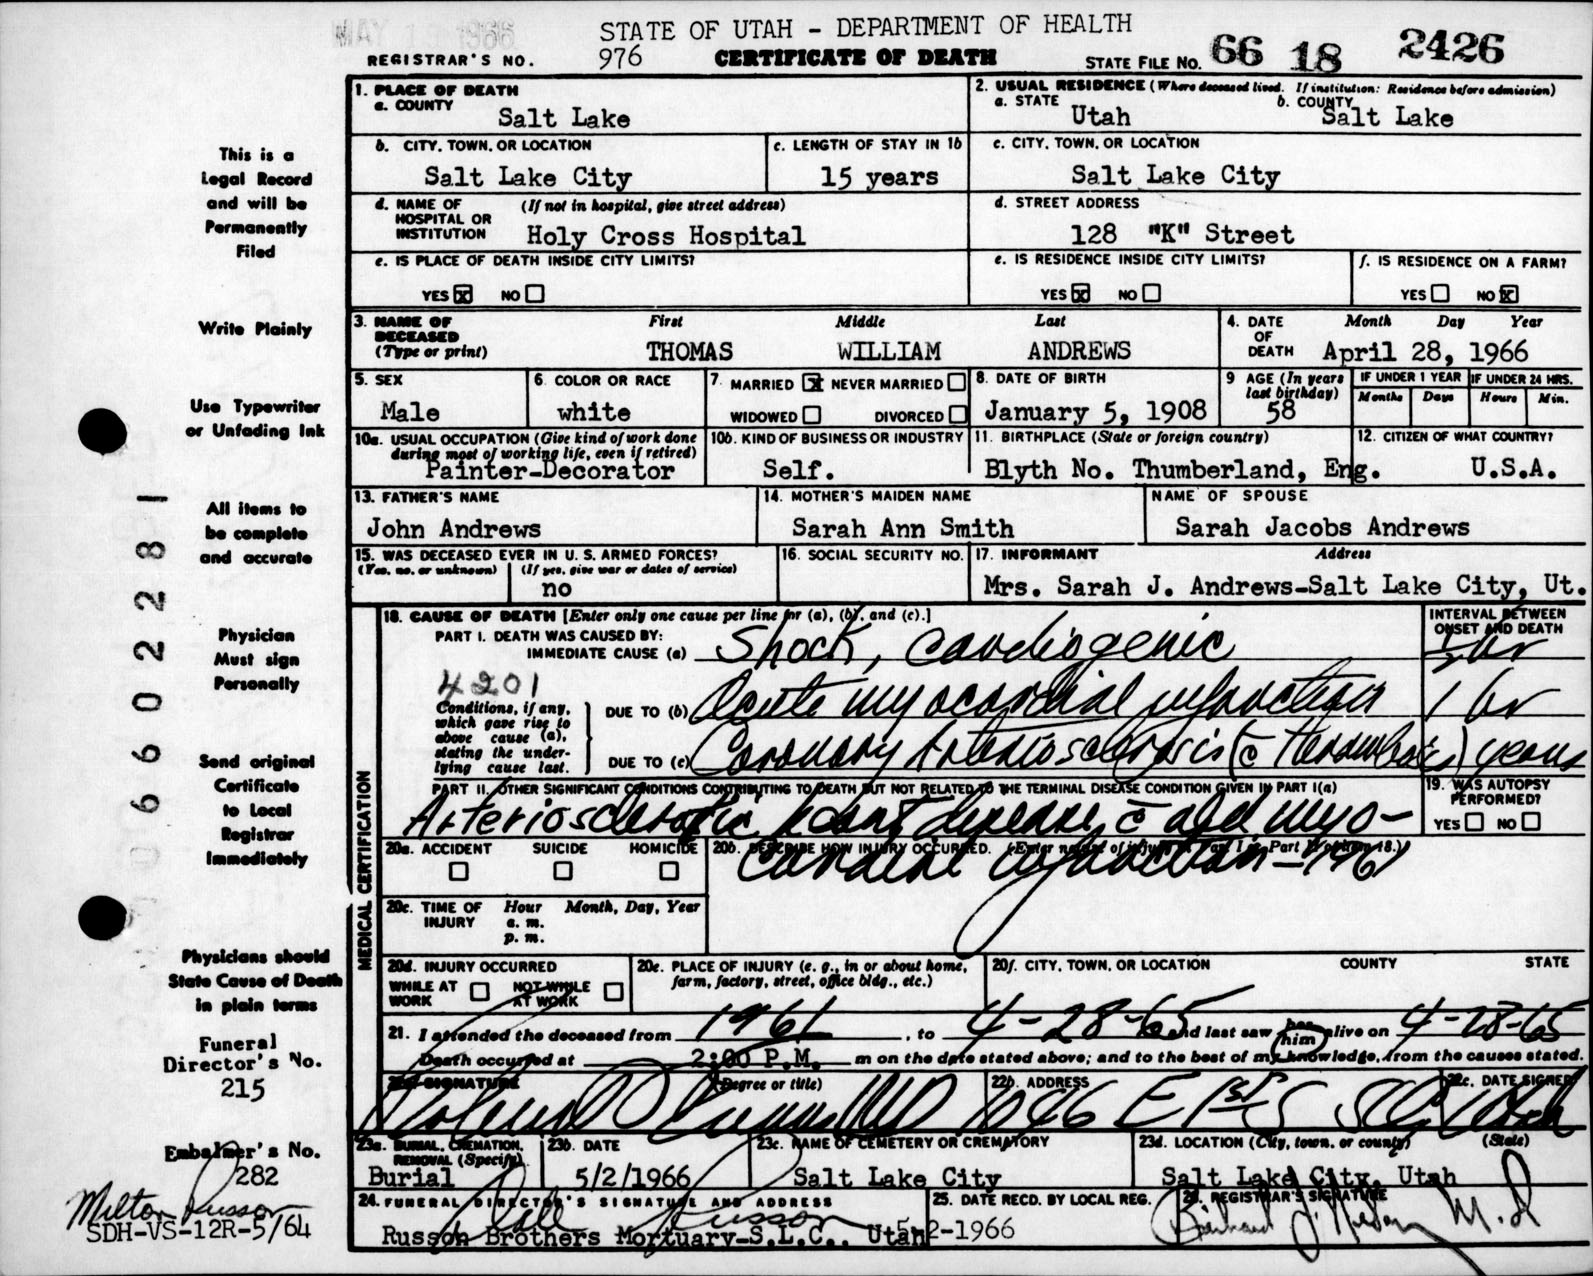 MAY 1 1966
STATE OF UTAH - DEPARTMENT OF HEALTH
REGISTRAR'S NO. 976 CERTIFICATE OF DEATH STATE FILE NO. 66 18 2426
1. PLACE OF DEATH
a. COUNTY
Salt Lake
2. USUAL RESIDENCE (Where deceased lived. If institution: Residence before admission)
a. STATE b. COUNTY
Utah Salt Lake
b. CITY, TOWN, OR LOCATION
Salt Lake City
c. LENGTH OF STAY IN 1b
15 years
c. CITY, TOWN, OR LOCATION
Salt Lake City
d. NAME OF (If not in hospital, give street address)
HOSPITAL OR
INSTITUTION Holy Cross Hospital
d. STREET ADDRESS
128 "K" Street
e. IS PLACE OF DEATH INSIDE CITY LIMITS?
YES X NO
e. IS RESIDENCE INSIDE CITY LIMITS?
YES X NO
f. IS RESIDENCE ON A FARM?
YES NO X
3. NAME OF First Middle Last
DECEASED
(Type or print) THOMAS WILLIAM ANDREWS
4. DATE Month Day Year
OF
DEATH April 28, 1966
5. SEX
Male
6. COLOR OR RACE
white
7. MARRIED X NEVER MARRIED
WIDOWED DIVORCED
8. DATE OF BIRTH
January 5, 1908
9 AGE (In years
last birthday)
58
IF UNDER 1 YEAR IF UNDER 24 HRS.
Months Days Hours Min.
10a. USUAL OCCUPATION (Give kind of work done
during most of working life, even if retired)
Painter-Decorator
10b. KIND OF BUSINESS OR INDUSTRY
Self.
11. BIRTHPLACE (State or foreign country)
Blyth No. Thumberland, Eng.
12. CITIZEN OF WHAT COUNTRY?
U.S.A.
13. FATHER'S NAME
John Andrews
14. MOTHER'S MAIDEN NAME
Sarah Ann Smith
NAME OF SPOUSE
Sarah Jacobs Andrews
15. WAS DECEASED EVER IN U. S. ARMED FORCES?
(Yes, no, or unknown) (If yes, give war or dates of service)
no
16. SOCIAL SECURITY NO.
17. INFORMANT Address
Mrs. Sarah J. Andrews-Salt Lake City, Ut.
MEDICAL CERTIFICATION
18. CAUSE OF DEATH [Enter only one cause per line for (a), (b), and (c).]
INTERVAL BETWEEN
ONSET AND DEATH
PART I. DEATH WAS CAUSED BY:
IMMEDIATE CAUSE (a) Shock, cardiogenic 1/2 hr
4201
Conditions, if any,
which gave rise to
above cause (a),
stating the under-
lying cause last.
DUE TO (b) Acute myocardial infarction 1 hr
DUE TO (c) Coronary Arteriosclerosis (c̄ Thrombosis) years
PART II. OTHER SIGNIFICANT CONDITIONS CONTRIBUTING TO DEATH BUT NOT RELATED TO THE TERMINAL DISEASE CONDITION GIVEN IN PART I(a)
Arteriosclerotic heart disease, c̄ old myo-
cardial infarction - 1961
19. WAS AUTOPSY
PERFORMED?
YES NO
20a. ACCIDENT SUICIDE HOMICIDE
20b. DESCRIBE HOW INJURY OCCURRED. (Enter nature of injury in Part I or Part II of item 18.)
20c. TIME OF Hour Month, Day, Year
INJURY a. m.
p. m.
20d. INJURY OCCURRED
WHILE AT NOT WHILE
WORK AT WORK
20e. PLACE OF INJURY (e. g., in or about home,
farm, factory, street, office bldg., etc.)
20f. CITY, TOWN, OR LOCATION COUNTY STATE
21. I attended the deceased from 1961, to 4-28-65 and last saw her him alive on 4-28-65
Death occurred at 2:00 P.M. m on the date stated above; and to the best of my knowledge, from the causes stated.
22a SIGNATURE (Degree or title)
MD
22b. ADDRESS
E 1st S SLC Utah
22c. DATE SIGNED
23a. BURIAL, CREMATION,
REMOVAL (Specify)
Burial
23b. DATE
5/2/1966
23c. NAME OF CEMETERY OR CREMATORY
Salt Lake City
23d. LOCATION (City, town, or county) (State)
Salt Lake City, Utah
24. FUNERAL DIRECTOR'S SIGNATURE AND ADDRESS
Russon
Russon Brothers Mortuary-S.L.C., Utah
25. DATE RECD. BY LOCAL REG.
5-2-1966
26. REGISTRAR'S SIGNATURE
M.D
This is a
Legal Record
and will be
Permanently
Filed
Write Plainly
Use Typewriter
or Unfading Ink
All items to
be complete
and accurate
Physician
Must sign
Personally
Send original
Certificate
to Local
Registrar
Immediately
Physicians should
State Cause of Death
in plain terms
Funeral
Director's No.
215
Embalmer's No.
282
Milton Russon
SDH-VS-12R-5/64
6602281